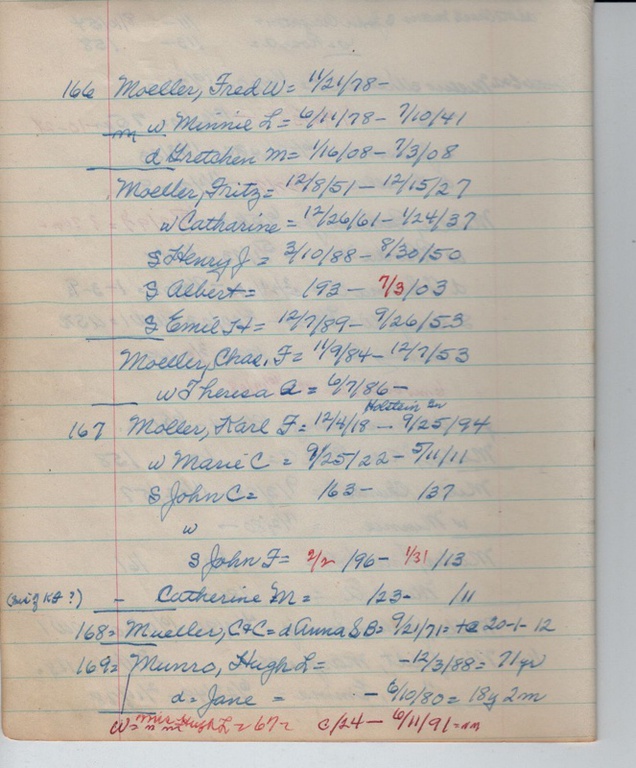 166 Moeller, Fred W = 11/21/78-
m w Minnie L = 6/11/78 - 7/10/41
d Gretchen M = 1/16/08 - 7/3/08
Moeller, Fritz = 12/8/51 - 12/15/27
w Catharine = 12/26/61 - 1/24/37
S Henry J = 3/10/88 - 8/30/50
S Albert = /93 - 7/3/03
S Emil H = 12/7/89 - 9/26/53
Moeller, Chas. F = 11/9/84 - 12/7/53
w Theresa A = 6/7/86 -
Holstein Ger
167 Moller, Karl F = 12/4/18 - 9/25/94
w Marie C = 9/25/22 - 5/11/11
S John C = /63 - /37
w
S John F = 2/2/96 - 1/31/13
(wif KF ?) - Catherine M = /23 - /11
168 = Mueller, C+C = d Anna S.B = 9/21/71 = 20-1-12
169 = Munro, Hugh L = -12/3/88 = 71 yr
d = Jane = - 6/10/80 = 18y 2m
W = Mrs Hugh L = 67 = c/24 - 6/11/91 =